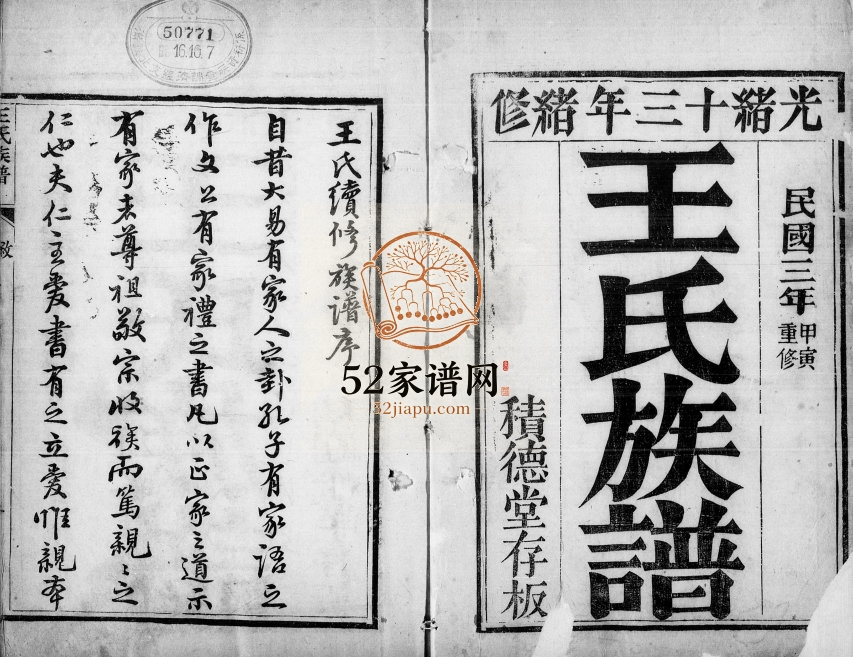 光緒十三年緒修
民國三年甲寅重修
王氏族譜
積德堂存板
王氏續修族譜序
自昔大易有家人之卦孔子有家語之
作文公有家禮之書凡以正家之道示
有家者尊祖敬宗收族而篤親親之
仁也夫仁主愛書有之立愛惟親本
王氏族譜
50771
16.16.7
52家谱网
52jiapu.com